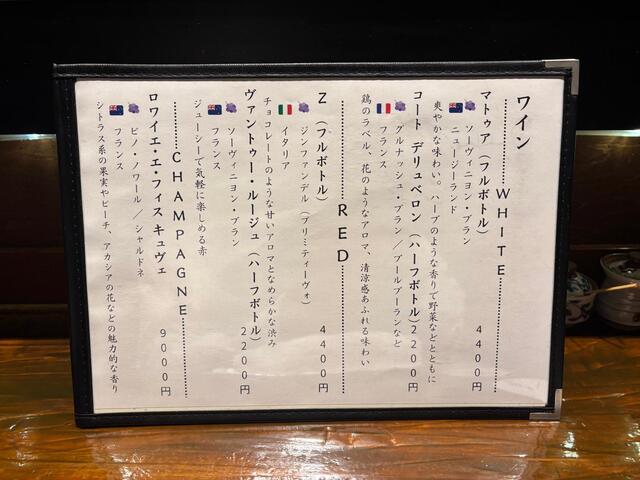 ワイン
WHITE
マトゥア（フルボトル） 4400円
ソーヴィニヨン・ブラン
ニュージーランド
爽やかな味わい。ハーブのような香りで野菜などとともに
コート デリュベロン（ハーフボトル）2200円
グルナッシュ・ブラン／ブールブーランなど
フランス
鶏のラベル、花のようなアロマ、清涼感あふれる味わい
RED
Z（フルボトル） 4400円
ジンファンデル（プリミティーヴォ）
イタリア
チョコレートのような甘いアロマとなめらかな渋み
ヴァントゥー・ルージュ（ハーフボトル） 2200円
ソーヴィニヨン・ブラン
フランス
ジューシーで気軽に楽しめる赤
CHAMPAGNE
ロワイエ・エ・フィス キュヴェ 9000円
ピノ・ノワール／シャルドネ
フランス
シトラス系の果実やピーチ、アカシアの花などの魅力的な香り